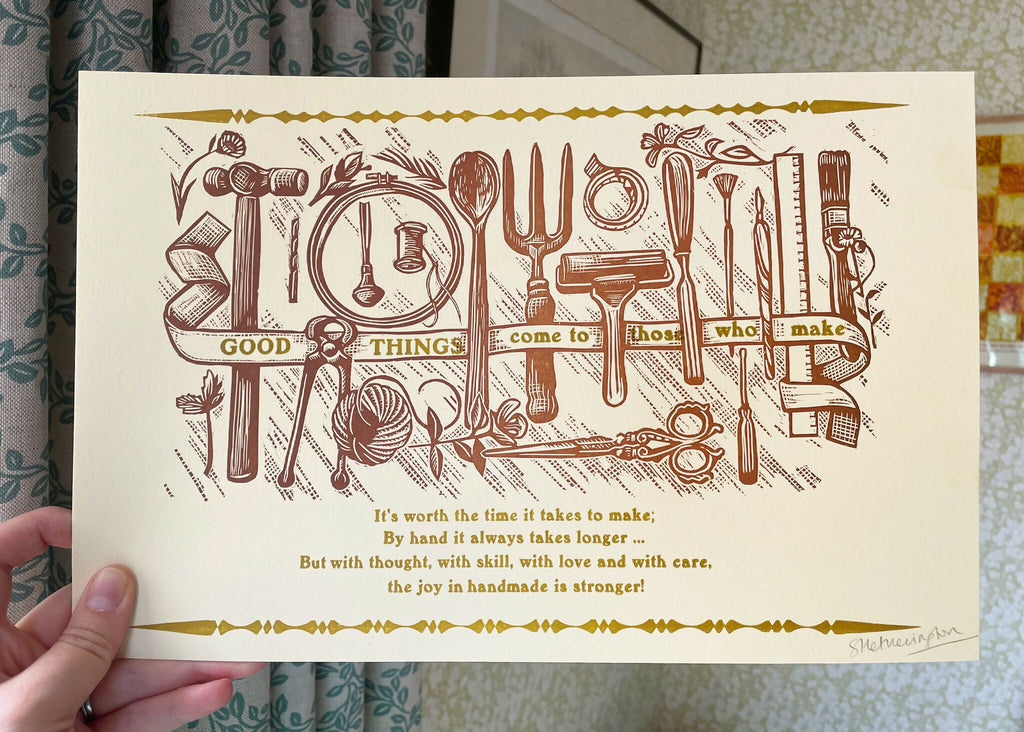 GOOD THINGS come to those who make
It's worth the time it takes to make;
By hand it always takes longer ...
But with thought, with skill, with love and with care,
the joy in handmade is stronger!
SHetherington